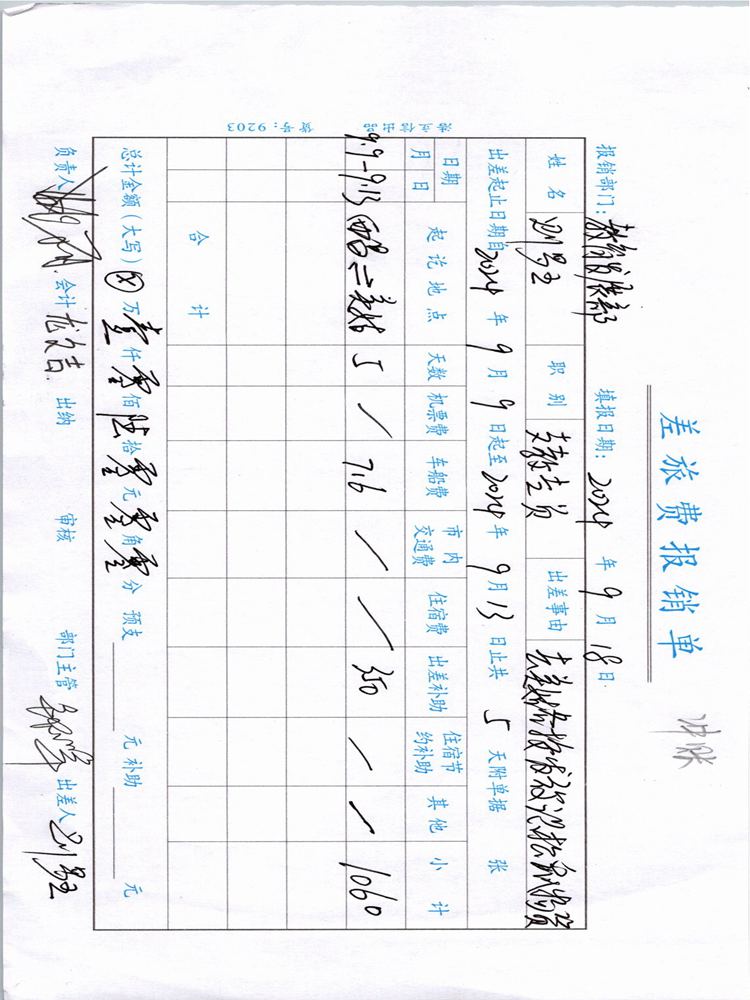 差旅费报销单
冲账
报销部门：教育发展部 填报日期：2024 年 9 月 18 日
姓名 职别 支教专员 出差事由
出差起止日期自 2024 年 9 月 9 日起至 2024 年 9 月 13 日止共 5 天附单据 张
日期 月 日 起讫地点 天数 机票费 车船费 市内交通费 住宿费 出差补助 住宿节约补助 其他 小计
9.9-9.13 西昌 美姑 5 / 710 / / 350 / / 1060
合计
总计金额（大写）⊗ 万 壹 仟 零 佰 陆 拾 零 元 零 角 零 分 预支 元 补助 元
负责人 会计 出纳 审核 部门主管 出差人
货号：9203